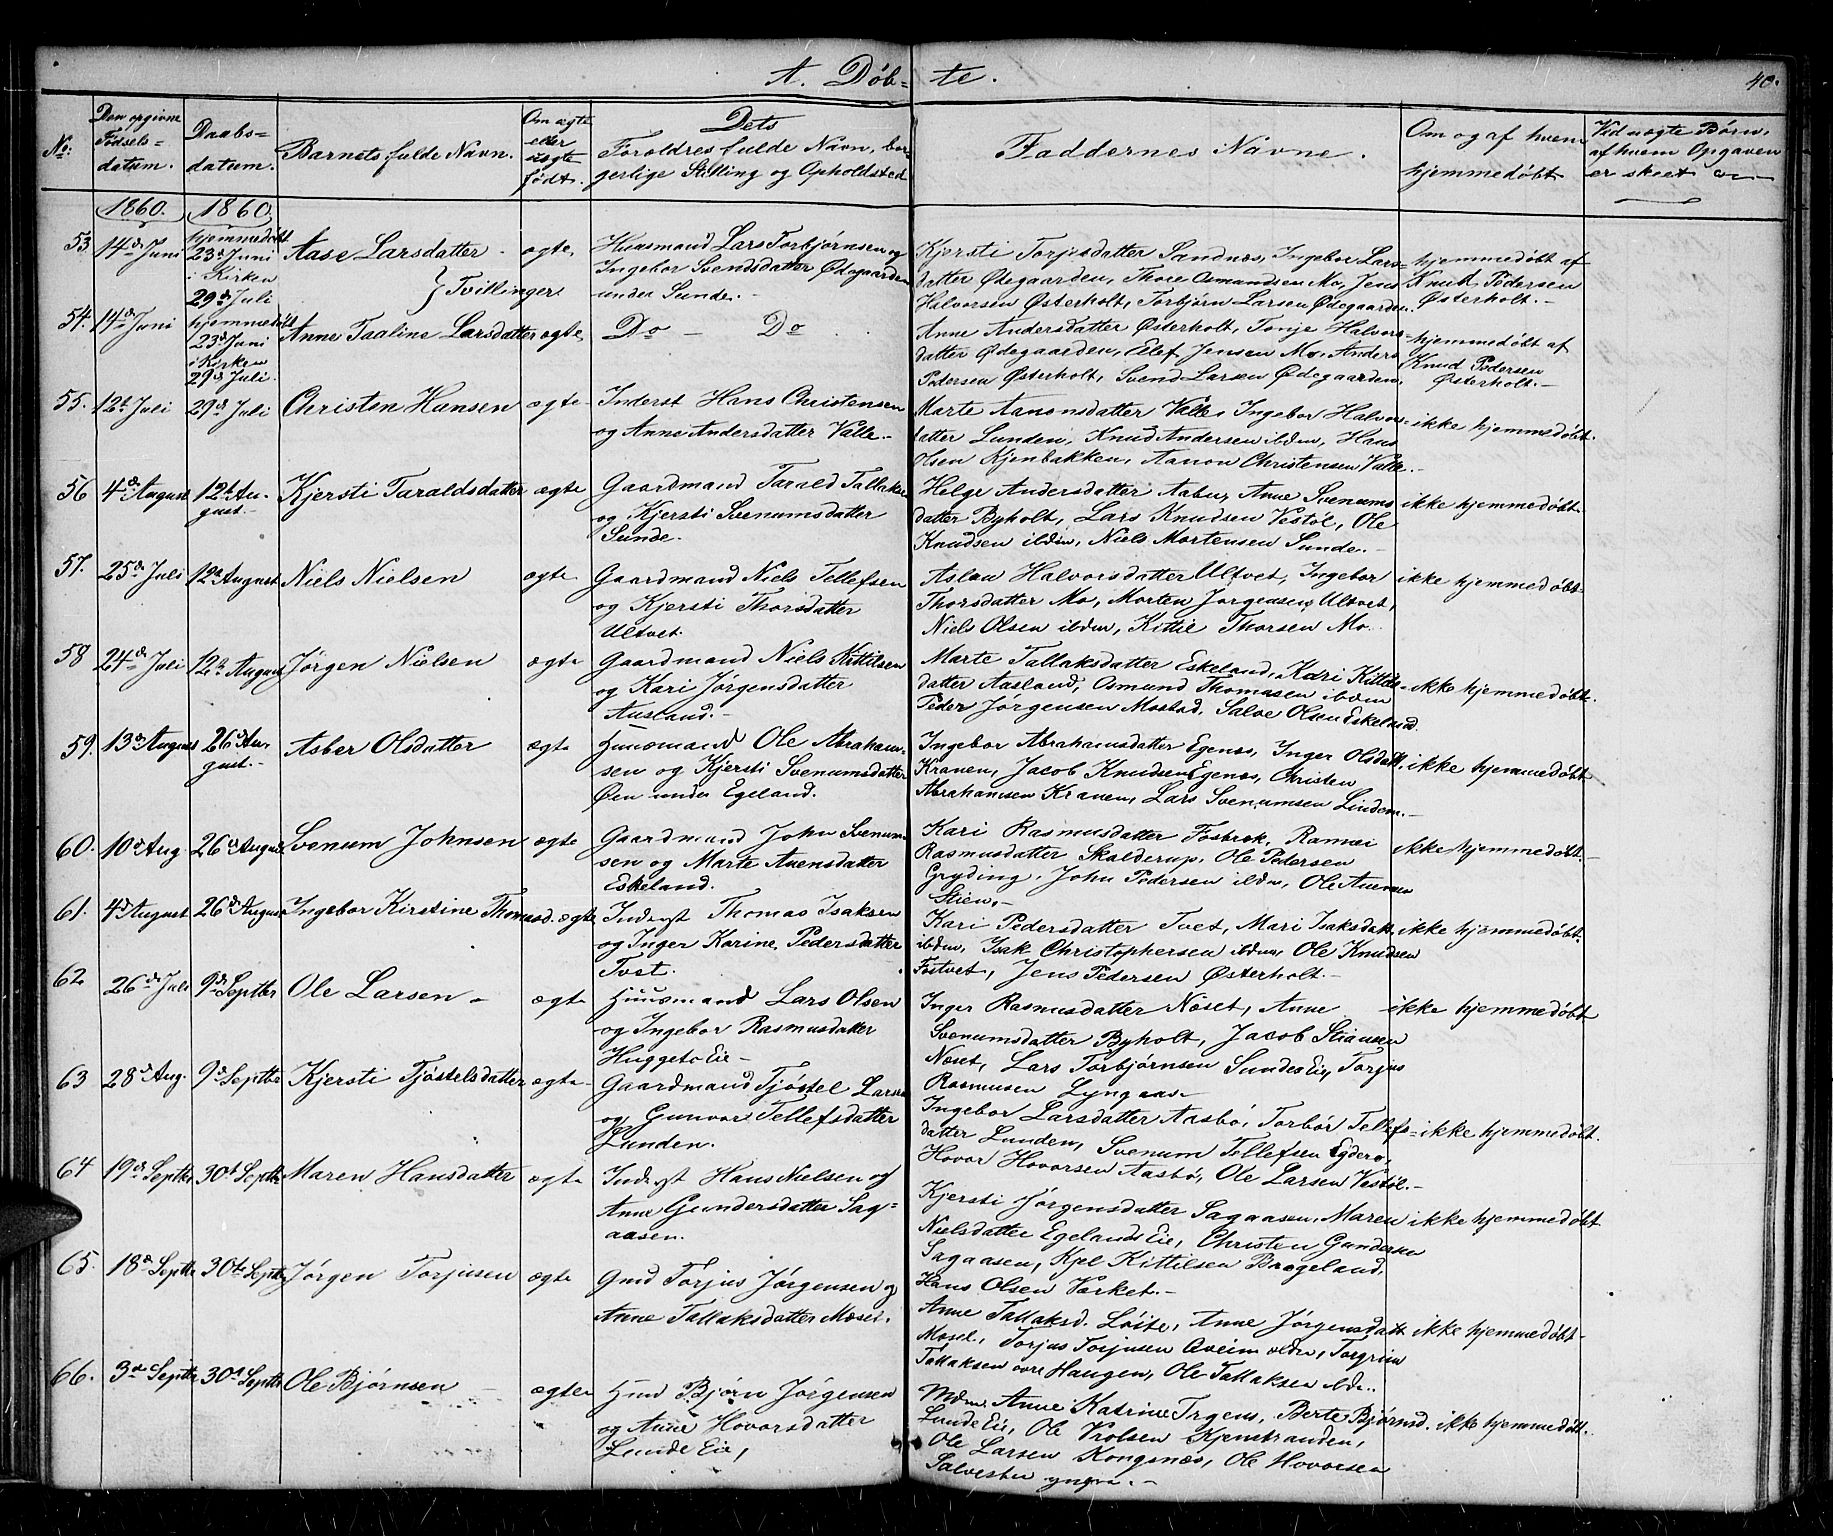 A. Døb- te.
40.
No.
Den opgivne Fødsels- datum.
Daabs- datum.
Barnets fulde Navn.
Om ægte eller uægte født.
Dets Forældres fulde Navn, bor- gerlige Stilling og Opholdsted
Faddernes Navne.
Om og af hvem hjemmedøbt
Ved uægte Børn, af hvem Opgaven er skeet
1860.
1860.
53. 14de Juni hjemmedøbt 23de Juni i Kirken 29de Juli
Aase Larsdatter - ægte
Huusmand Lars Torbjørnsen og
Ingebor Svendsdatter Ødegaarden
under Sunde. -
Kjersti Torjusdatter Sandnes, Ingebor Lars-
datter Ødegaarden, Thore Osmundsen Mo, Jens
Halvorsen Østerholt, Torbjørn Larsen Ødegaarden.
hjemmedøbt af
Knud Pedersen
Østerholt. -
} Tvillinger
54. 14de Juni hjemmedøbt 23de Juni i Kirken 29de Juli.
Anne Taaline Larsdatter ægte
Do - Do
Anne Andersdatter Østerholt, Tonje Halvors-
datter Ødegaarden, Elef Jensen Mo, Anders
Pedersen Østerholt, Svend Larsen Ødegaarden.
hjemmedøbt af
Knud Pedersen
Østerholt. -
55. 12te Juli 29de Juli Christen Hansen ægte
Inderst Hans Christensen
og Anne Andersdatter Valle. -
Marte Aanonsdatter Valle, Ingebor Halvors-
datter Lunden, Knud Andersen ibdm, Hans
Olsen Kjenbakken, Aanon Christensen Valle. -
ikke hjemmedøbt.
56 4de August 12te Au- gust. - Kjersti Taraldsdatter ægte
Gaardmand Tarald Tallaksen
og Kjersti Svenumsdatter
Sunde.
Helge Andersdatter Aabu, Anne Svenums
datter Byholt, Lars Knudsen Vestøl, Ole
Knudsen ibdm, Niels Mortensen Sunde. -
ikke hjemmedøbt.
57. 25de Juli 12te August Niels Nielsen ægte
Gaardmand Niels Tellefsen
og Kjersti Thorsdatter
Ultvet.
Aslau Halvorsdatter Ultvet, Ingebor
Thorsdatter Mo, Morten Jørgensen Ultvet,
Niels Olsen ibdm, Kittil Thorsen Mo.
ikke hjemmedøbt.
58 24de Juli 12te August Jørgen Nielsen ægte
Gaardmand Niels Kittilsen
og Kari Jørgensdatter
Aasland. -
Marte Tallaksdatter Eskeland, Kari Kittils-
datter Aasland, Osmund Thomasen ibdm
Peder Jørgensen Mostad, Salve Olsen Eskeland.
ikke hjemmedøbt.
59. 13de August 26de Au- gust. - Asber Olsdatter ægte
Huusmand Ole Abraham-
sen og Kjersti Svenumsdatter
Øen under Egeland.
Ingebor Abrahamsdatter Egenæs, Inger Olsdatt.
Kranen, Jacob Knudsen Egenæs, Christen
Abrahamsen Kranen, Lars Svenumsen Linden. -
ikke hjemmedøbt
60. 10de Aug. 26de August Svenum Johnsen ægte
Gaardmand John Svenum-
sen og Marte Auensdatter
Eskeland.
Kari Rasmusdatter Fosbræk,
Rasmusdatter Skalderup, Ole Pedersen
Gryding, John Pedersen ibdm, Ole Auensen
Stien. -
ikke hjemmedøbt. -
61. 4de August 26de August Ingebor Kirstine Thomasd. ægte
Inderst Thomas Isaksen
og Inger Karine Pedersdatter
Tvet.
Kari Pedersdatter Tvet, Mari Isaksdatt.
ibdm, Isak Christophersen ibdm, Ole Knudsen
Fostvet, Jens Pedersen Østerholt. -
ikke hjemmedøbt.
62 26de Juli 9de Septbr Ole Larsen - ægte
Huusmand Lars Olsen
og Ingebor Rasmusdatter
Huggeto Eie -
Inger Rasmusdatter Noset, Anne
Svenumsdatter Byholt, Jacob Stiansen
Noset, Lars Torbjørnsen Sundes Eie, Torjus
Rasmusen Lyngaas -
ikke hjemmedøbt
63 28de Aug. 9de Septbr Kjersti Tjøstelsdatter ægte
Gaardmand Tjøstel Larsen
og Gunvor Tellefsdatter
Lunden.
Ingebor Larsdatter Aasbø, Torbør Tellefs-
datter Lunden, Svenum Tellefsen
Hovor Hovorsen Aasbø, Ole Larsen Vestøl. -
ikke hjemmedøbt.
64 19de Septbr 30te Septbr Maren Hansdatter ægte
Inderst Hans Nielsen og
Anne Gundersdatter Sag-
aasen.
Kjersti Jørgensdatter Sagaasen, Maren
Nielsdatter Egelands Eie, Christen Gundersen
Sagaasen, Kjel Kittilsen Brægeland,
Hans Olsen Varket. -
ikke hjemmedøbt
65. 18de Septbr 30te Septbr Jørgen Torjusen ægte
Gmd Torjus Jørgensen og
Anne Tallaksdatter Mæsel.
Anne Tallaksd. Løite, Anne Jørgensdatt
Mæsel, Torjus Torjusen Aveim , Torgrim
Tallaksen øvre Haugen, Ole Tallaksen ibdm.
ikke hjemmedøbt -
66. 3de Septbr 30te Septbr Ole Bjørnsen - ægte
Hmd Bjørn Jørgensen
og Anne Hovorsdatter
Lunde Eie,
Mdm, Anne Katrine Trgens, Berte Bjørnsd.
Lunde Eie, Ole Vrolsen Kjenstranden,
Ole Larsen Kongsnæs, Ole Hovorsen
Salvesten yngre. -
ikke hjemmedøbt.